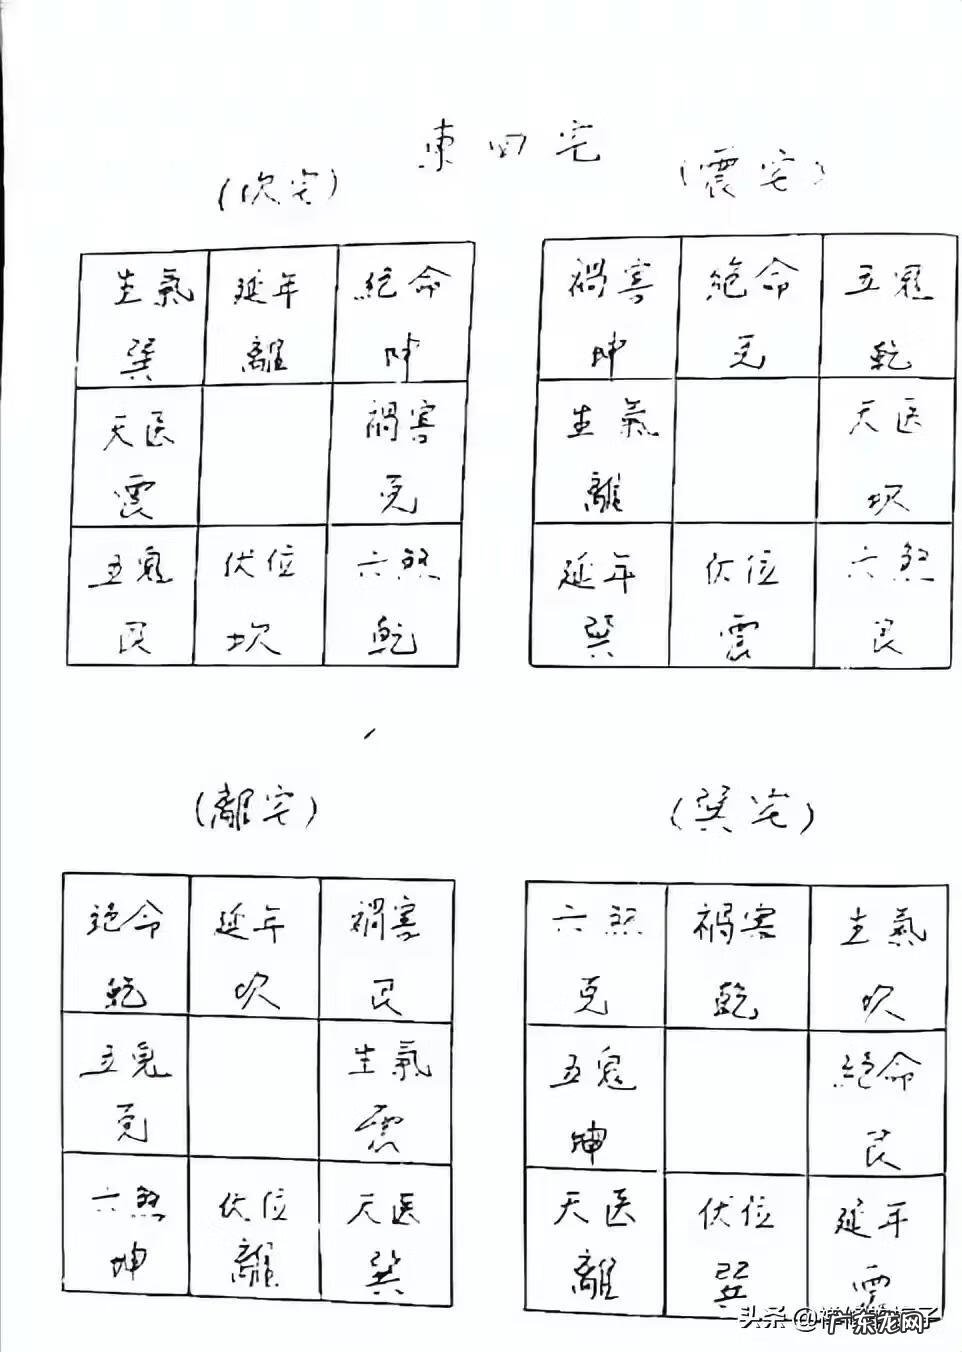 東四宅
(坎宅)
(震宅)
生氣 延年 絕命
巽 離 坤
天医 禍害
震 兑
五鬼 伏位 六煞
艮 坎 乾
禍害 絕命 五鬼
坤 兑 乾
生氣 天医
離 坎
延年 伏位 六煞
巽 震 艮
(離宅)
(巽宅)
絕命 延年 禍害
乾 坎 艮
五鬼 生氣
兑 震
六煞 伏位 天医
坤 離 巽
六煞 禍害 生氣
兑 乾 坎
五鬼 絕命
坤 艮
天医 伏位 延年
離 巽 震
头条 @
广东龙网